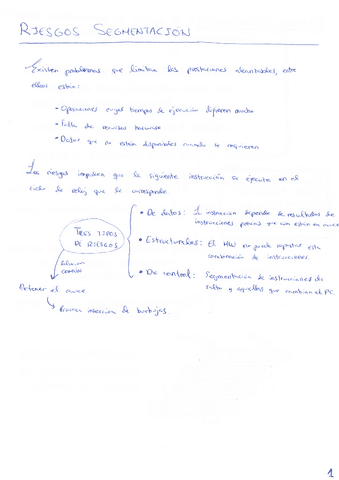 RIESGOS SEGMENTACIÓN
Existen problemas que limitan las prestaciones alcanzables, entre
ellos están:
• Operaciones cuyos tiempos de ejecución difieren mucho
• Falta de recursos hardware
• Datos que no están disponibles cuando se requieren
Los riesgos impiden que la siguiente instrucción se ejecute en el
ciclo de reloj que le corresponde
• De datos: La instrucción depende de resultados de
instrucciones previas que aún están en cauce
TRES TIPOS
DE RIESGOS
• Estructurales: El HW no puede soportar esta
combinación de instrucciones.
• De control: Segmentación de instrucciones de
salto y aquellas que cambian el PC.
Solución
común
Detener el cauce
inserción de burbujas.
1